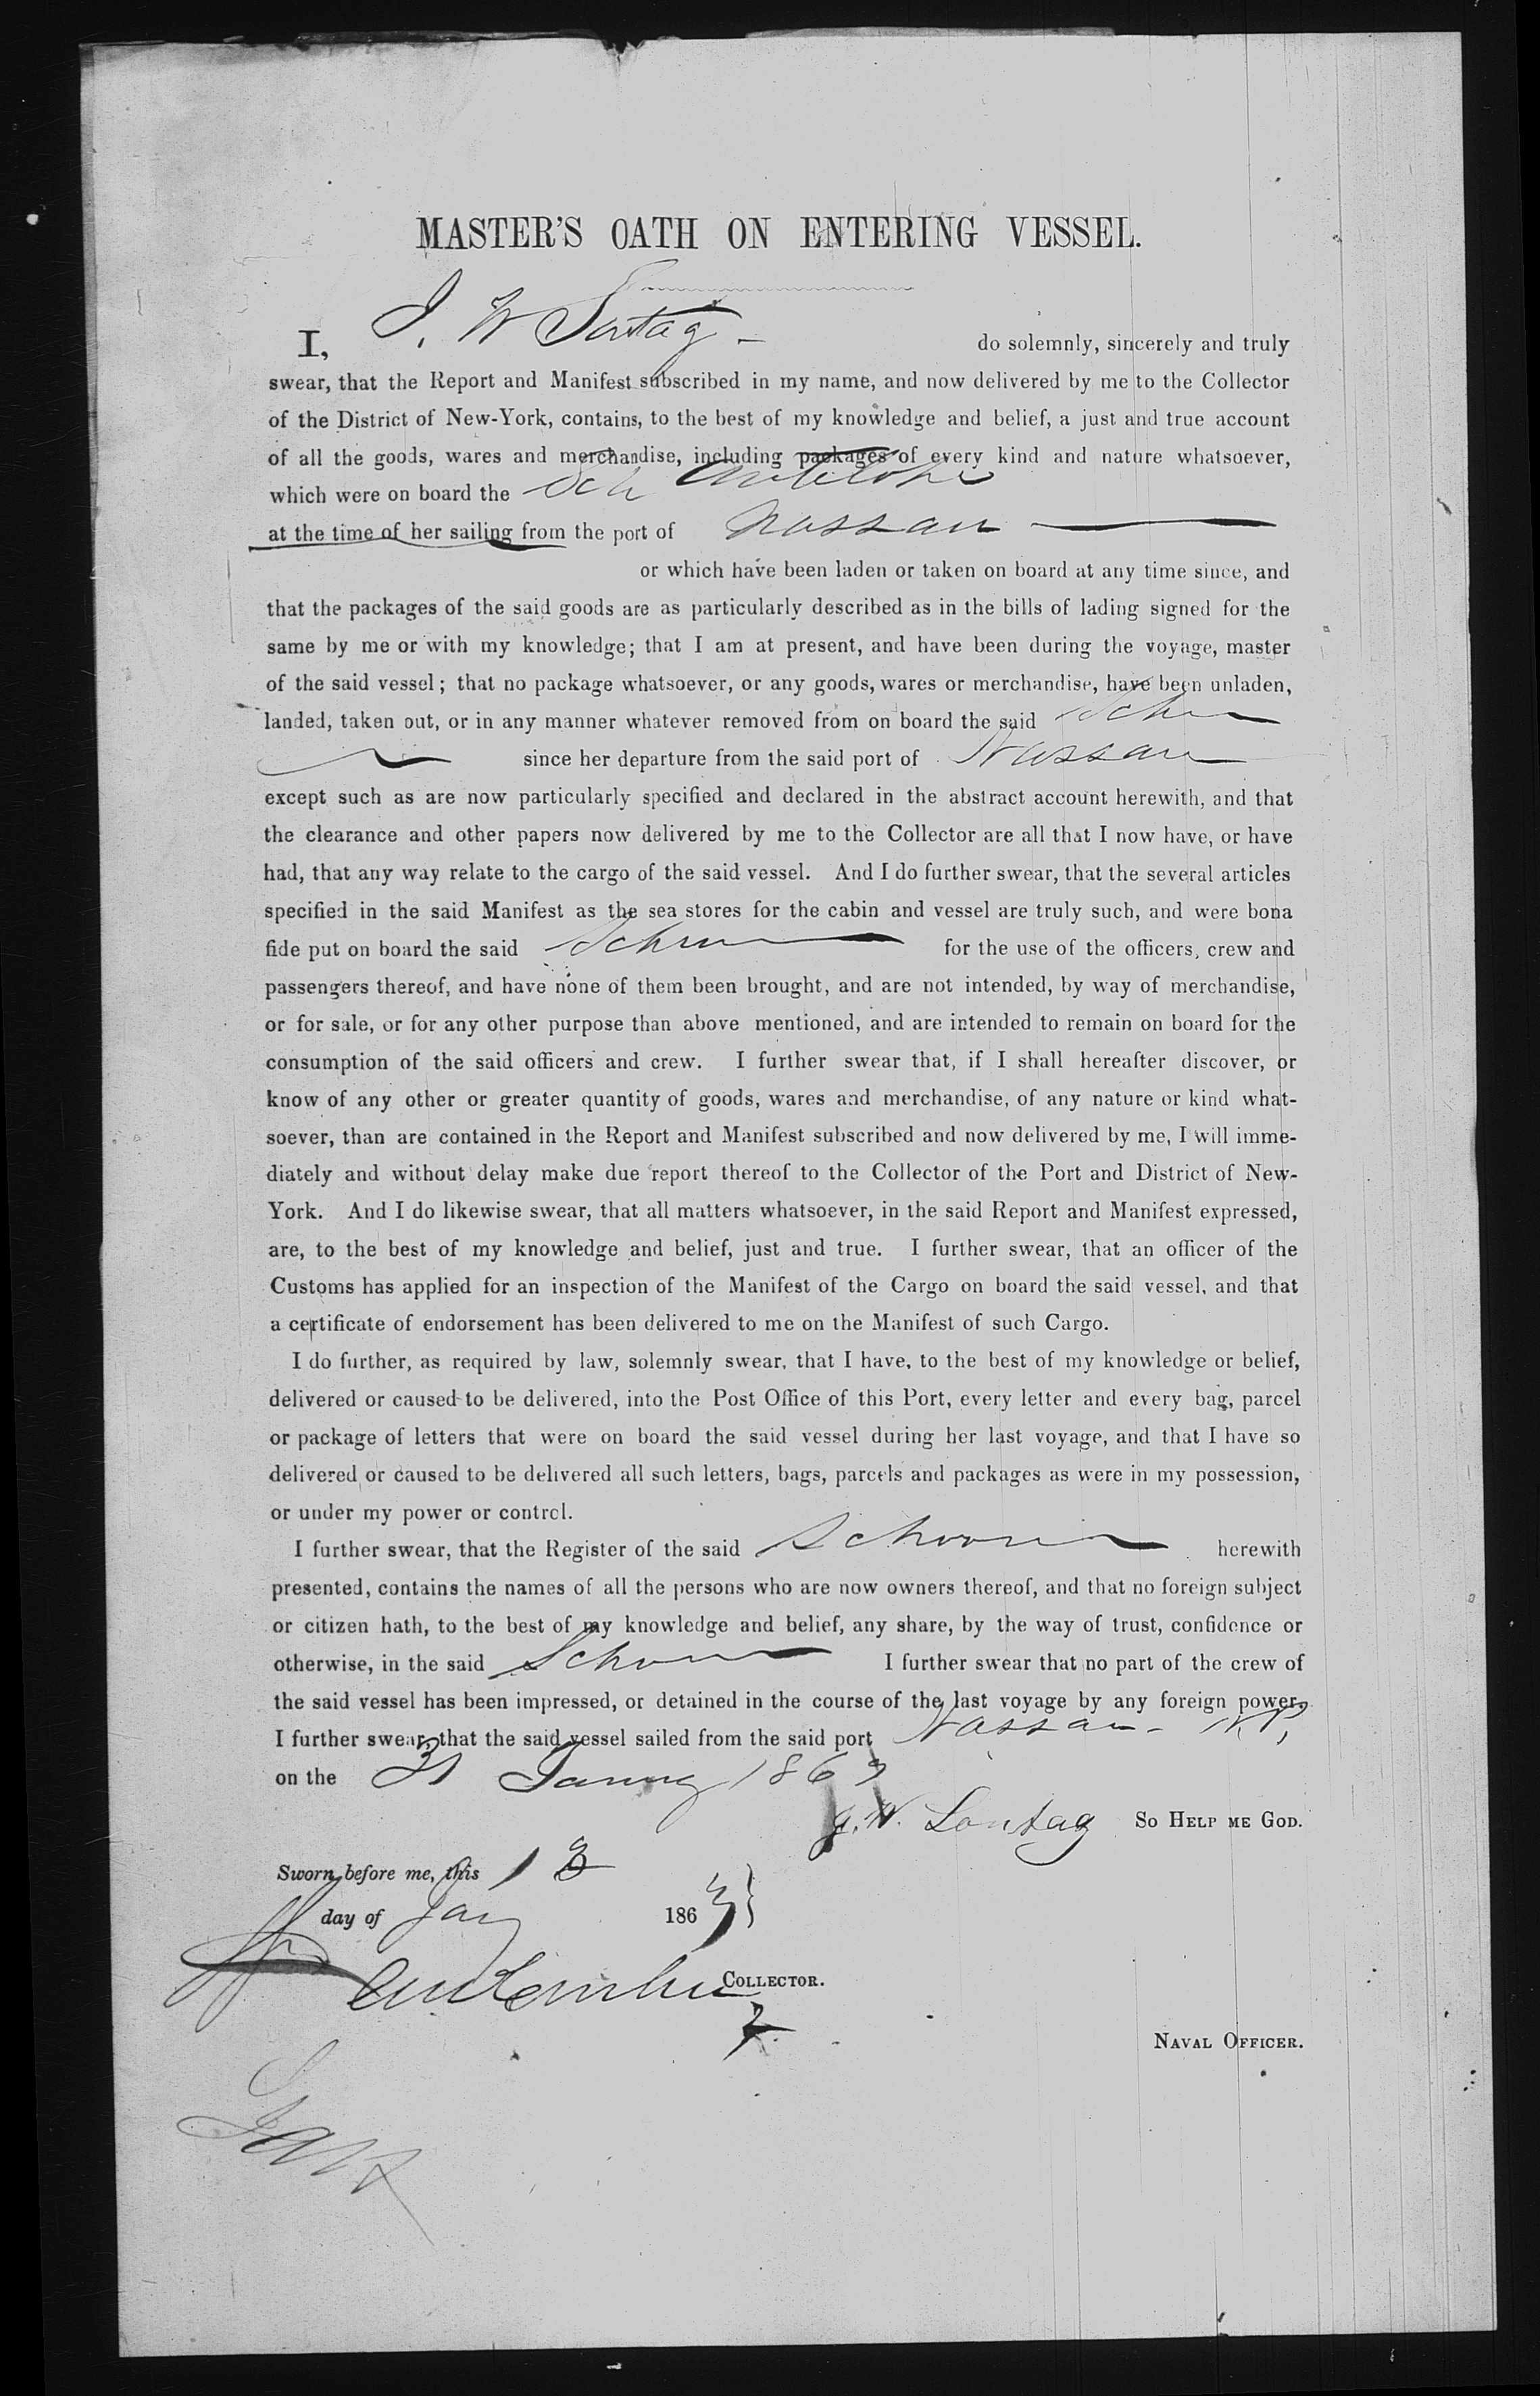 MASTER'S OATH ON ENTERING VESSEL.
I, J. W Sontag - do solemnly, sincerely and truly
swear, that the Report and Manifest subscribed in my name, and now delivered by me to the Collector
of the District of New-York, contains, to the best of my knowledge and belief, a just and true account
of all the goods, wares and merchandise, including packages of every kind and nature whatsoever,
which were on board the Sch Antelope
at the time of her sailing from the port of Nassau
or which have been laden or taken on board at any time since, and
that the packages of the said goods are as particularly described as in the bills of lading signed for the
same by me or with my knowledge; that I am at present, and have been during the voyage, master
of the said vessel; that no package whatsoever, or any goods, wares or merchandise, have been unladen,
landed, taken out, or in any manner whatever removed from on board the said Schr
since her departure from the said port of Nassau
except such as are now particularly specified and declared in the abstract account herewith, and that
the clearance and other papers now delivered by me to the Collector are all that I now have, or have
had, that any way relate to the cargo of the said vessel. And I do further swear, that the several articles
specified in the said Manifest as the sea stores for the cabin and vessel are truly such, and were bona
fide put on board the said Schr for the use of the officers, crew and
passengers thereof, and have none of them been brought, and are not intended, by way of merchandise,
or for sale, or for any other purpose than above mentioned, and are intended to remain on board for the
consumption of the said officers and crew. I further swear that, if I shall hereafter discover, or
know of any other or greater quantity of goods, wares and merchandise, of any nature or kind what-
soever, than are contained in the Report and Manifest subscribed and now delivered by me, I will imme-
diately and without delay make due report thereof to the Collector of the Port and District of New-
York. And I do likewise swear, that all matters whatsoever, in the said Report and Manifest expressed,
are, to the best of my knowledge and belief, just and true. I further swear, that an officer of the
Customs has applied for an inspection of the Manifest of the Cargo on board the said vessel, and that
a certificate of endorsement has been delivered to me on the Manifest of such Cargo.
I do further, as required by law, solemnly swear, that I have, to the best of my knowledge or belief,
delivered or caused to be delivered, into the Post Office of this Port, every letter and every bag, parcel
or package of letters that were on board the said vessel during her last voyage, and that I have so
delivered or caused to be delivered all such letters, bags, parcels and packages as were in my possession,
or under my power or control.
I further swear, that the Register of the said Schoon herewith
presented, contains the names of all the persons who are now owners thereof, and that no foreign subject
or citizen hath, to the best of my knowledge and belief, any share, by the way of trust, confidence or
otherwise, in the said Schoon I further swear that no part of the crew of
the said vessel has been impressed, or detained in the course of the last voyage by any foreign power.
I further swear, that the said vessel sailed from the said port Nassau - N.P,
on the 31 1863
J. W. Sontag So Help me God.
Sworn before me, this 13
day of Jany 1863
Collector.
Naval Officer.